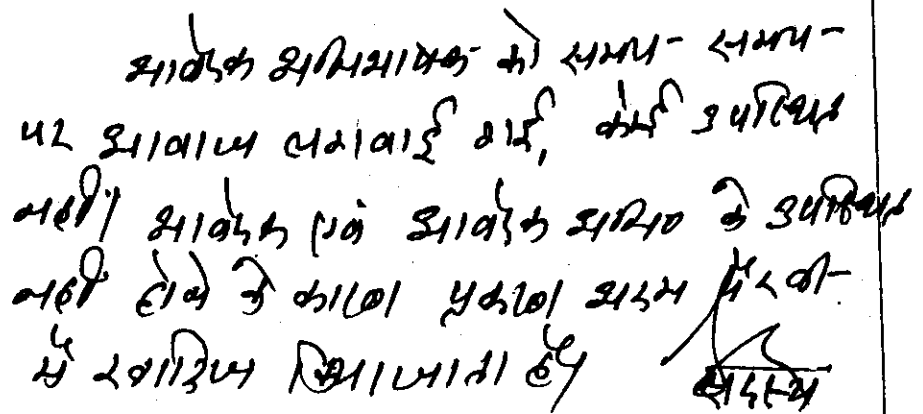 आवेदक अभिभाषक को समय- समय-
पर आवाज लगवाई गई, कोई उपस्थित
नहीं। आवेदक एवं आवेदक अभि० के उपस्थित
नहीं होने के कारण प्रकरण अदम पैरवी-
में खारिज किया जाता है।
सदस्य